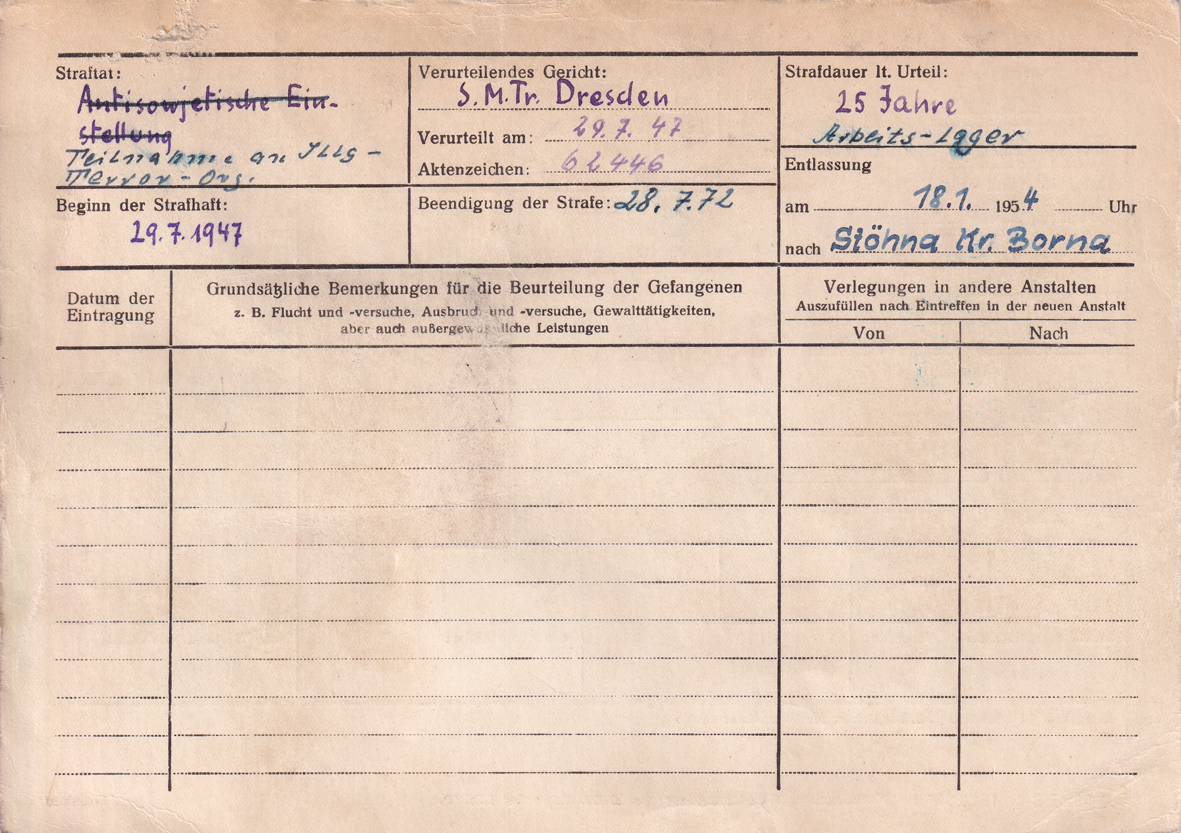 Straftat:
Antisowjetische Ein-
stellung
Teilnahme an Illg-
Terror-Org.
Verurteilendes Gericht:
S.M.Tr. Dresden
Verurteilt am: 29.7. 47
Aktenzeichen: 62446
Strafdauer lt. Urteil:
25 Jahre
Arbeits-Lager
Beginn der Strafhaft:
29.7.1947
Beendigung der Strafe: 28. 7.72
Entlassung
am 18.1. 1954 Uhr
nach Stöhna Kr. Borna
Datum der
Eintragung
Grundsätzliche Bemerkungen für die Beurteilung der Gefangenen
z. B. Flucht und -versuche, Ausbruch und -versuche, Gewalttätigkeiten,
aber auch außergewöhnliche Leistungen
Verlegungen in andere Anstalten
Auszufüllen nach Eintreffen in der neuen Anstalt
Von Nach